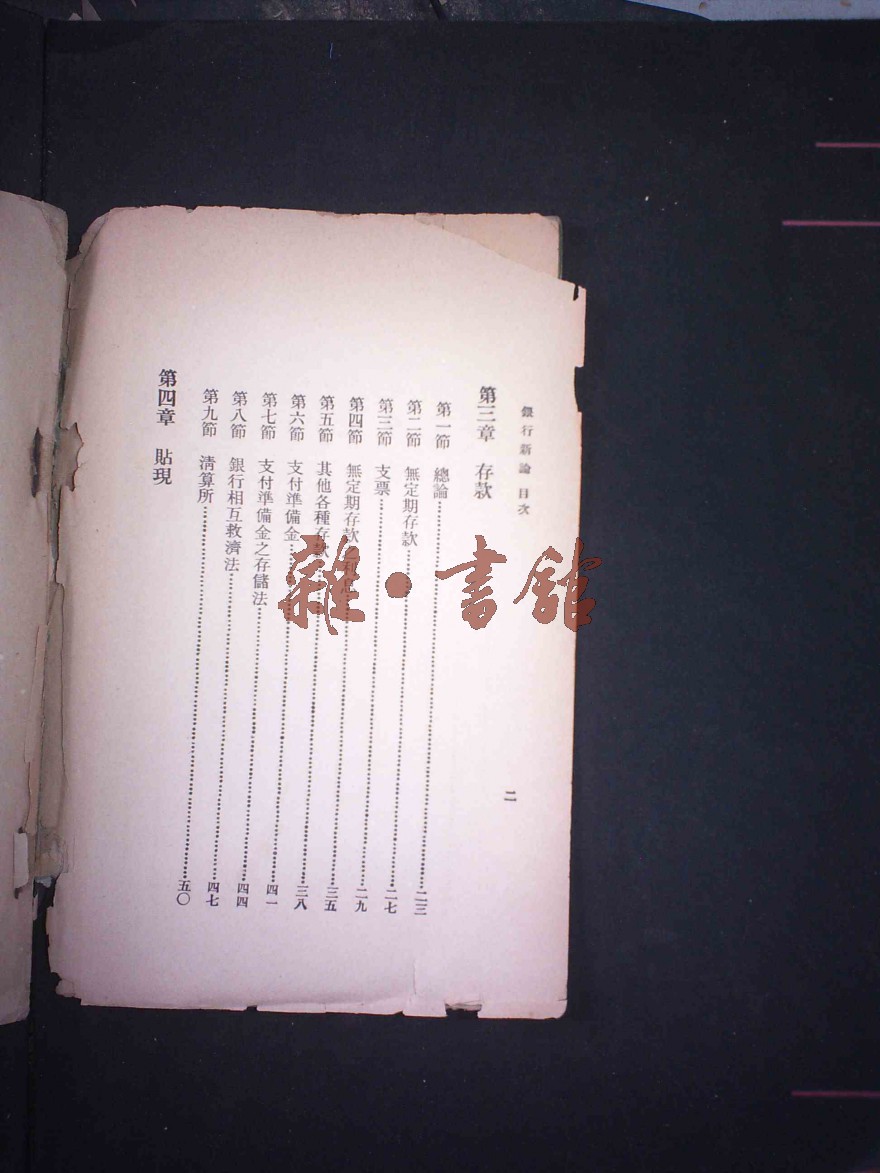 銀行新論 目次
二
第三章 存款
第一節 總論……二三
第二節 無定期存款……二七
第三節 支票……二九
第四節 無定期存款之利息……三五
第五節 其他各種存款……三八
第六節 支付準備金……四一
第七節 支付準備金之存儲法……四四
第八節 銀行相互救濟法……四七
第九節 清算所……五〇
第四章 貼現
雜·書館